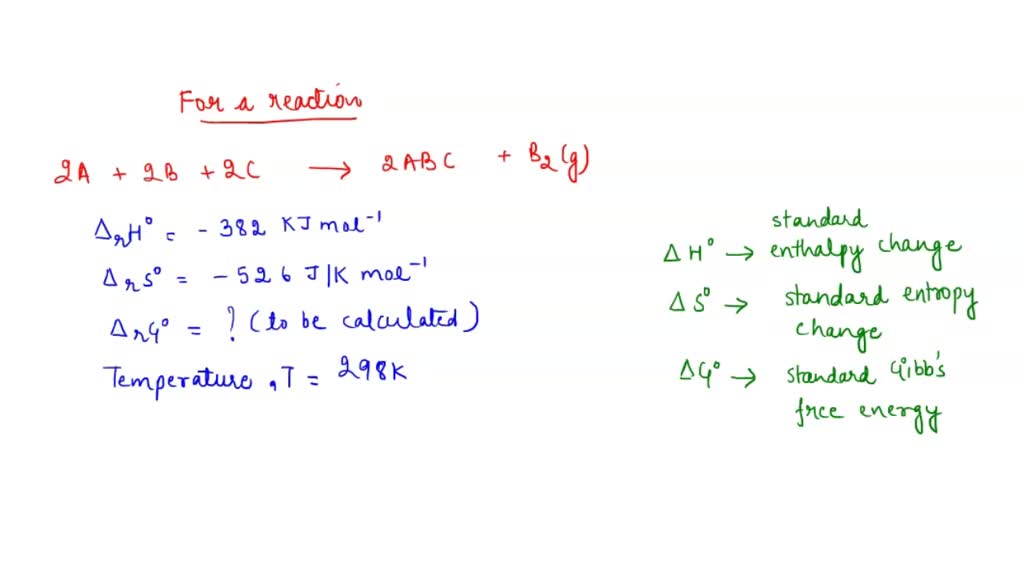 For a reaction
2A + 2B + 2C → 2ABC + B₂(g)
ΔrH° = - 382 KJ mol⁻¹
ΔrS° = - 526 J/K mol⁻¹
ΔrG° = ? (to be calculated)
Temperature, T = 298K
ΔH° → standard enthalpy change
ΔS° → standard entropy change
ΔG° → standard Gibb's free energy